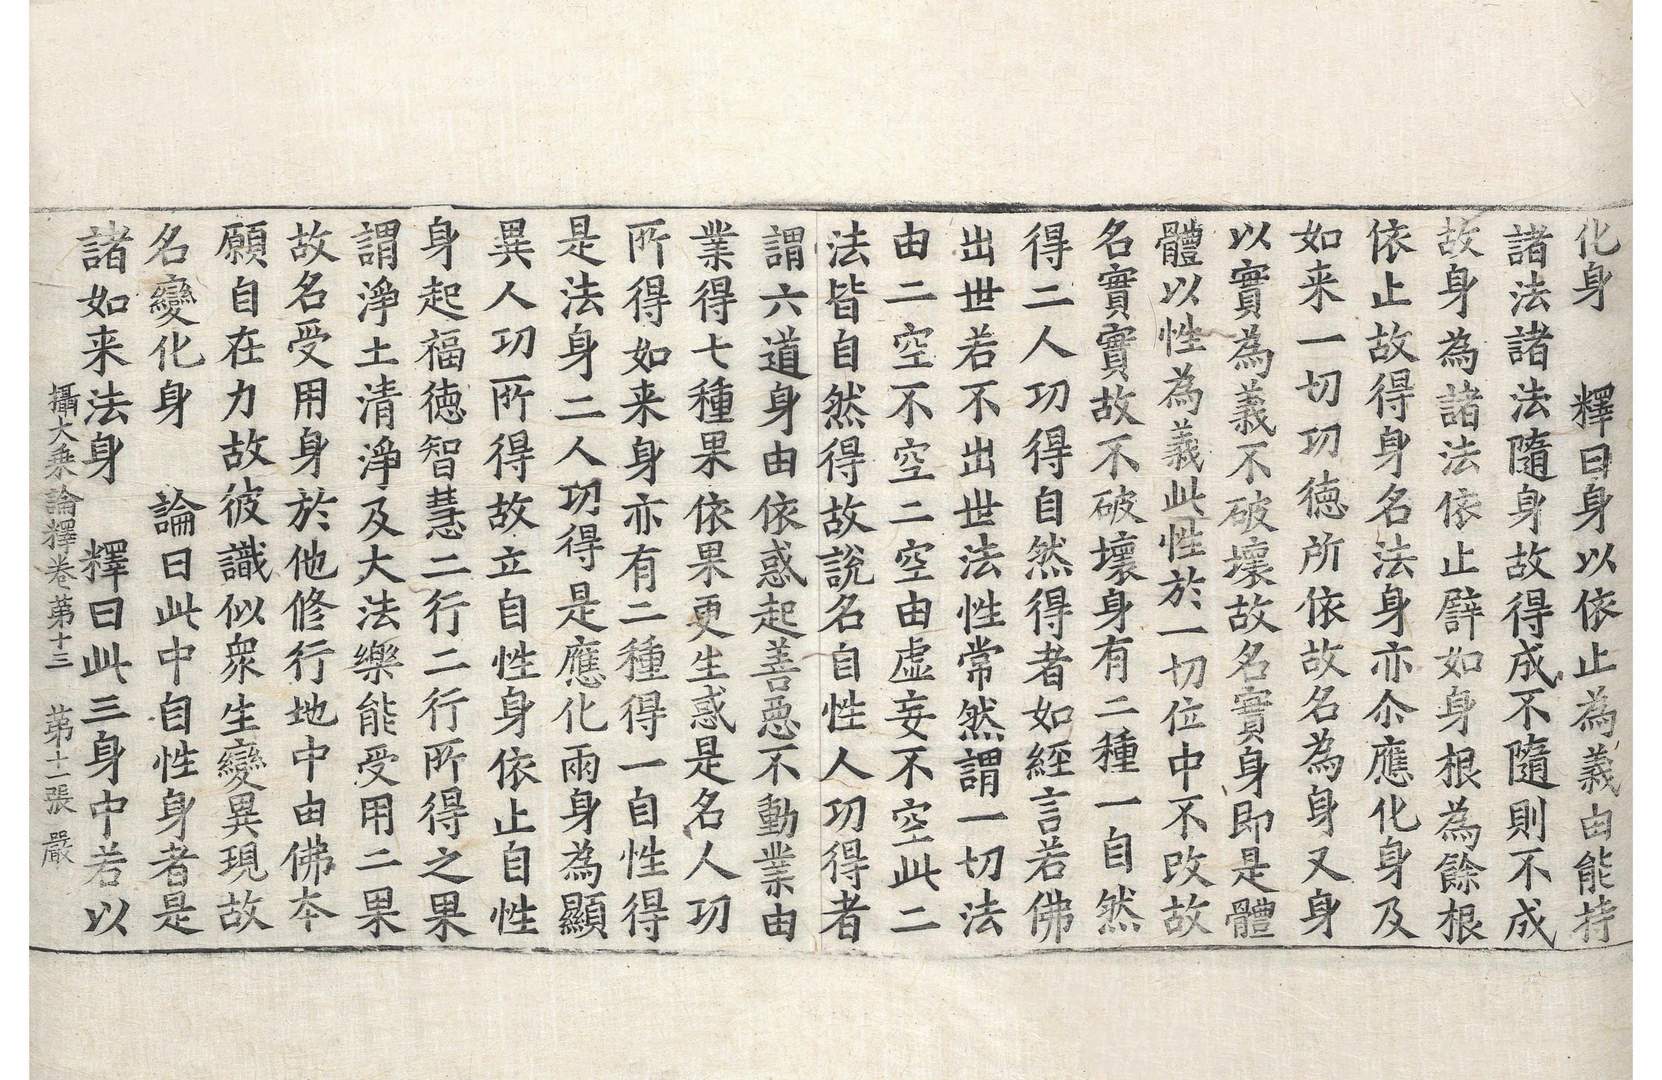 化身　釋曰身以依止為義由能持
諸法諸法隨身故得成不隨則不成
故身為諸法依止譬如身根為餘根
依止故得身名法身亦尒應化身及
如来一切功德所依故名為身又身
以實為義不破壞故名實身即是體
體以性為義此性於一切位中不改故
名實實故不破壞身有二種一自然
得二人功得自然得者如經言若佛
出世若不出世法性常然謂一切法
由二空不空二空由虛妄不空此二
法皆自然得故說名自性人功得者
謂六道身由依惑起善惡不動業由
業得七種果依果更生惑是名人功
所得如来身亦有二種得一自性得
是法身二人功得是應化兩身為顯
異人功所得故立自性身依止自性
身起福德智慧二行二行所得之果
謂淨土清淨及大法樂能受用二果
故名受用身於他修行地中由佛本
願自在力故彼識似衆生變異現故
名變化身　論曰此中自性身者是
諸如来法身　釋曰此三身中若以
攝大乘論釋卷第十三　第十一張　嚴